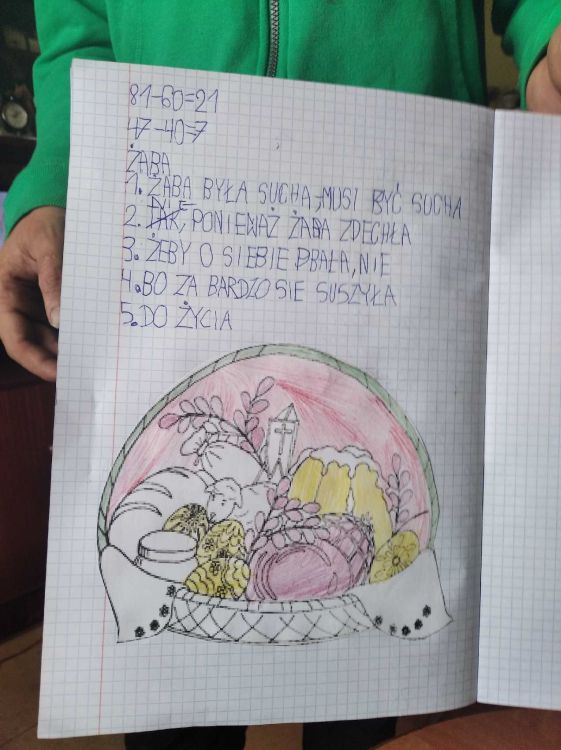 81-60=21
47-40=7
ŻABA
1. ŻABA BYŁA SUCHA, MUSI BYĆ SUCHA
NIE
2. TAK, PONIEWAŻ ŻABA ZDECHŁA
3. ŻEBY O SIEBIE DBAŁA, NIE
4. BO ZA BARDZO SIE SUSZYŁA
5. DO ŻYCIA